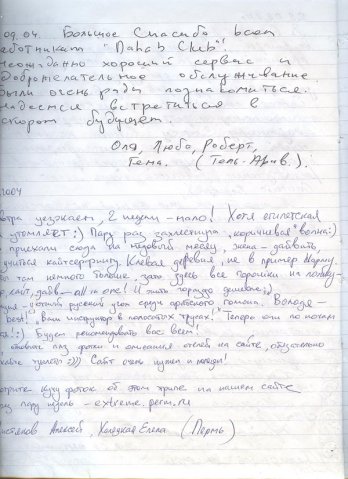 09.04. Большое Спасибо всем
работникам "Dahab Club".
Неожиданно хороший сервис и
доброжелательное обслуживание.
Были очень рады познакомиться.
Надеемся встретиться в
скором будущем.
Оля, Люба, Роберт,
Гена. (Тель-Авив.)
2004
Завтра уезжаем. 2 недели - мало! Хотя египетская
утомляет :) Пару раз захлестнула "коричневая" волна :)
приехали сюда на медовый месяц, жена - дайвить,
учиться кайтсерфингу. Клёвая деревня, не в пример
там немного больше, зато здесь все
кайт, дайв - all in one! И жить гораздо дешевле :)
русский угол среди арабского гомона. Володя -
best! "Ваш инструктор в полосатых трусах!" Теперь они по ночам
:) Будем рекомендовать вас всем!
фотки и описания отелей на сайте,
))) Сайт очень нужен и полезен!
Смотрите кучу фоток об этом трипе на нашем сайте
пару недель - extreme.perm.ru
Алексей, Елена (Пермь)